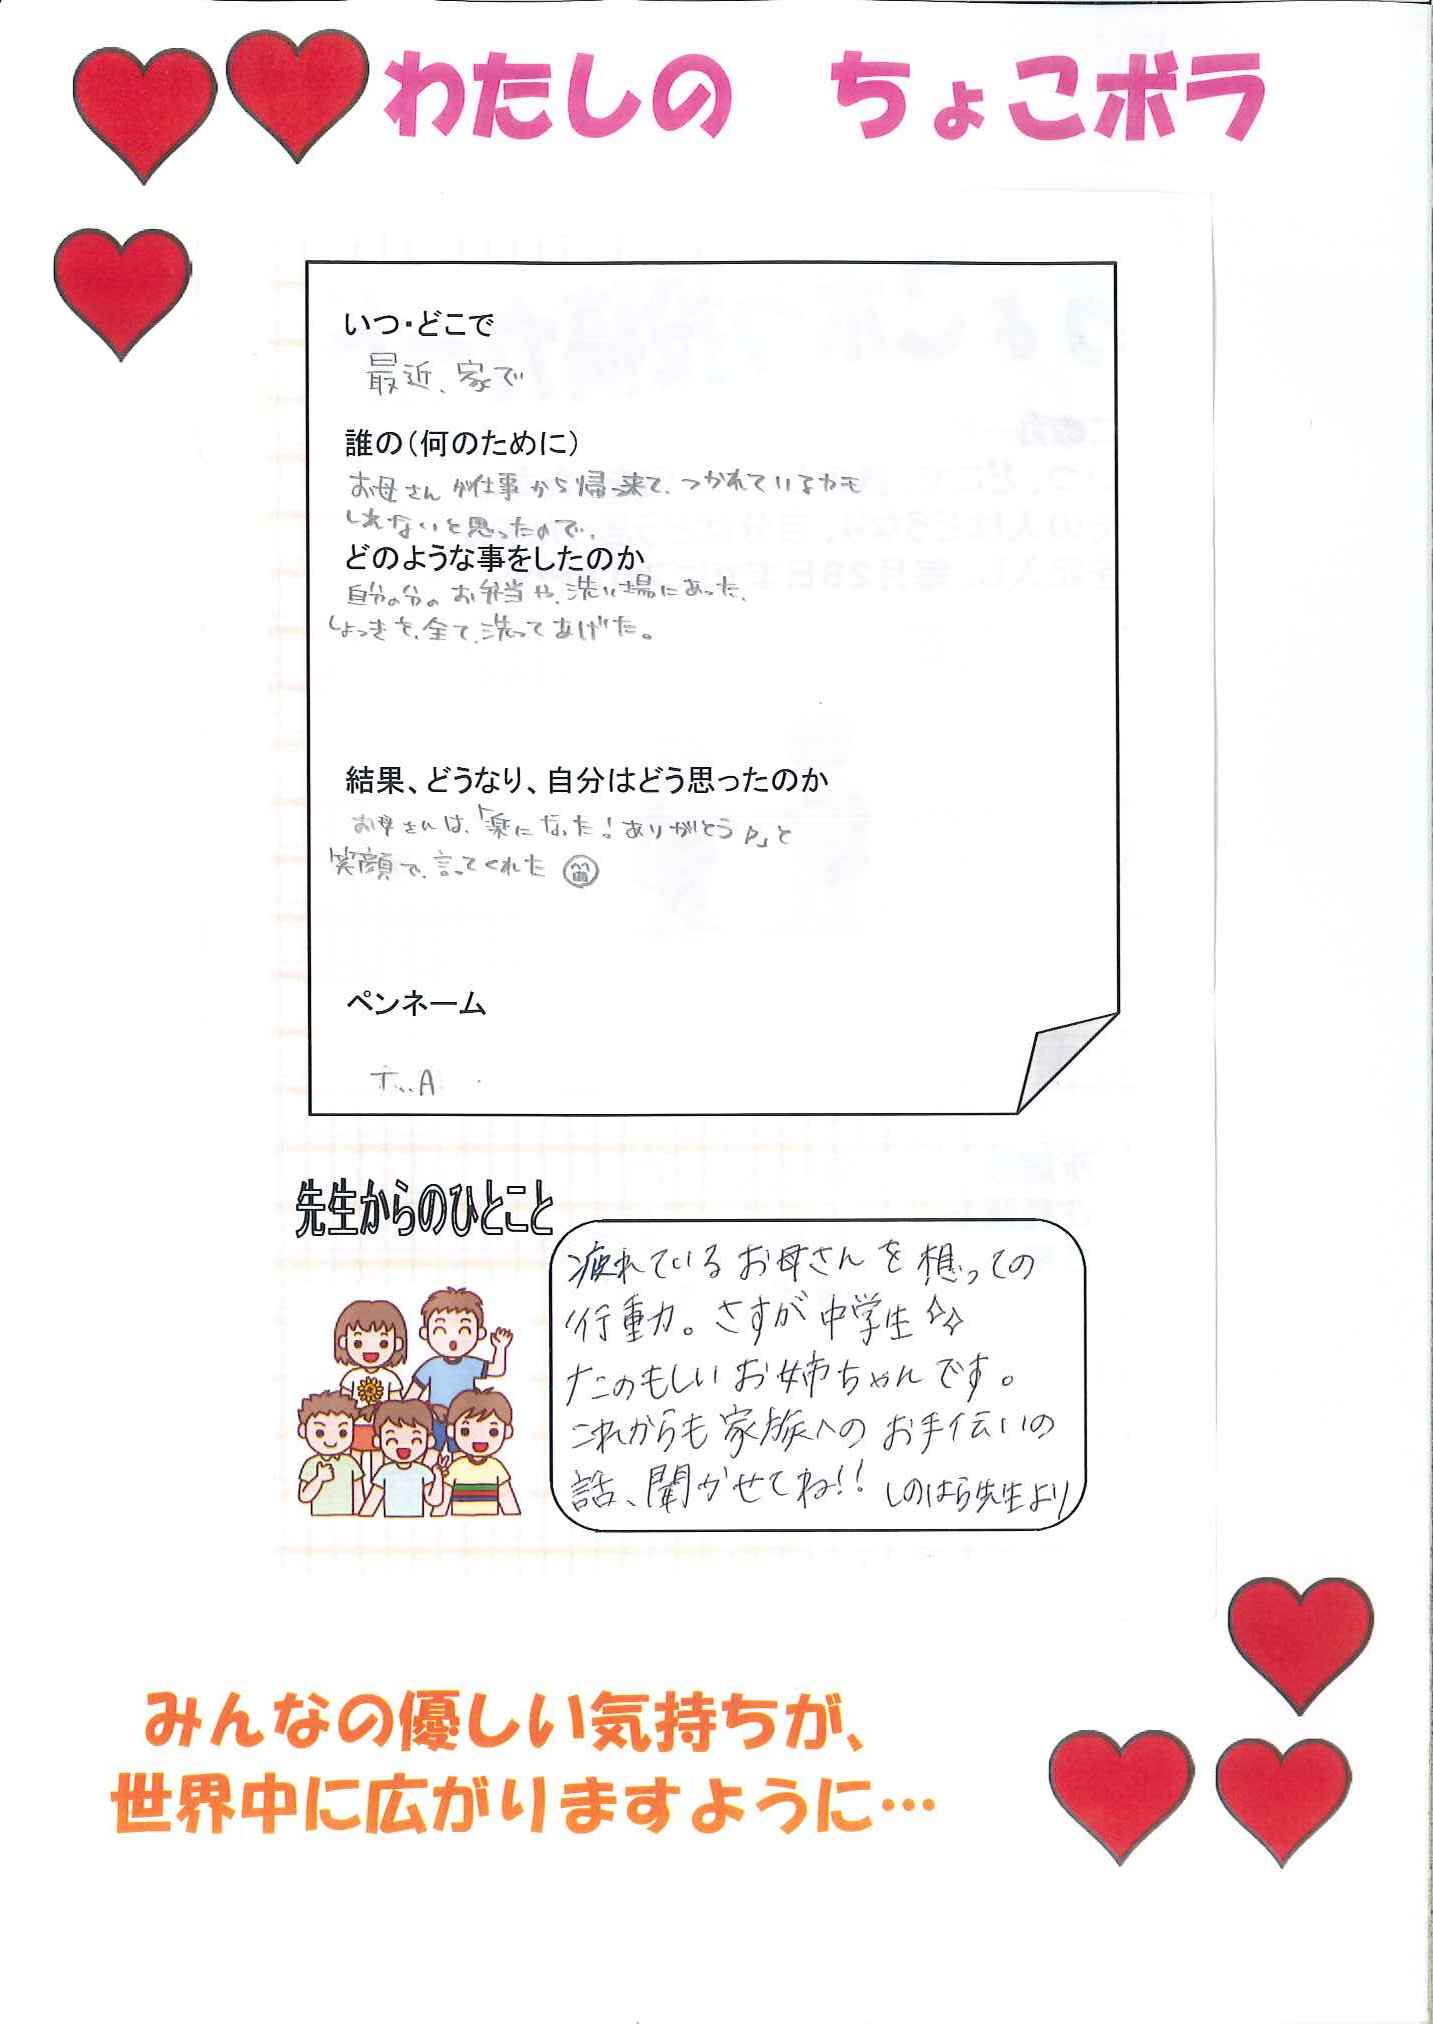 わたしの　ちょこボラ
いつ・どこで
最近、家で
誰の（何のために）
お母さんが仕事から帰って来て、つかれているかも
しれないと思ったので、
どのような事をしたのか
自分の分のお弁当や、洗い場にあった、
しょっきを、全て、洗ってあげた。
結果、どうなり、自分はどう思ったのか
お母さんは、「楽になった!ありがとう♪」と
笑顔で、言ってくれた
ペンネーム
先生からのひとこと
疲れているお母さんを想っての
行動力。さすが中学生☆☆
たのもしいお姉ちゃんです。
これからも家族へのお手伝いの
話、聞かせてね!! しのはら先生より
みんなの優しい気持ちが、
世界中に広がりますように…